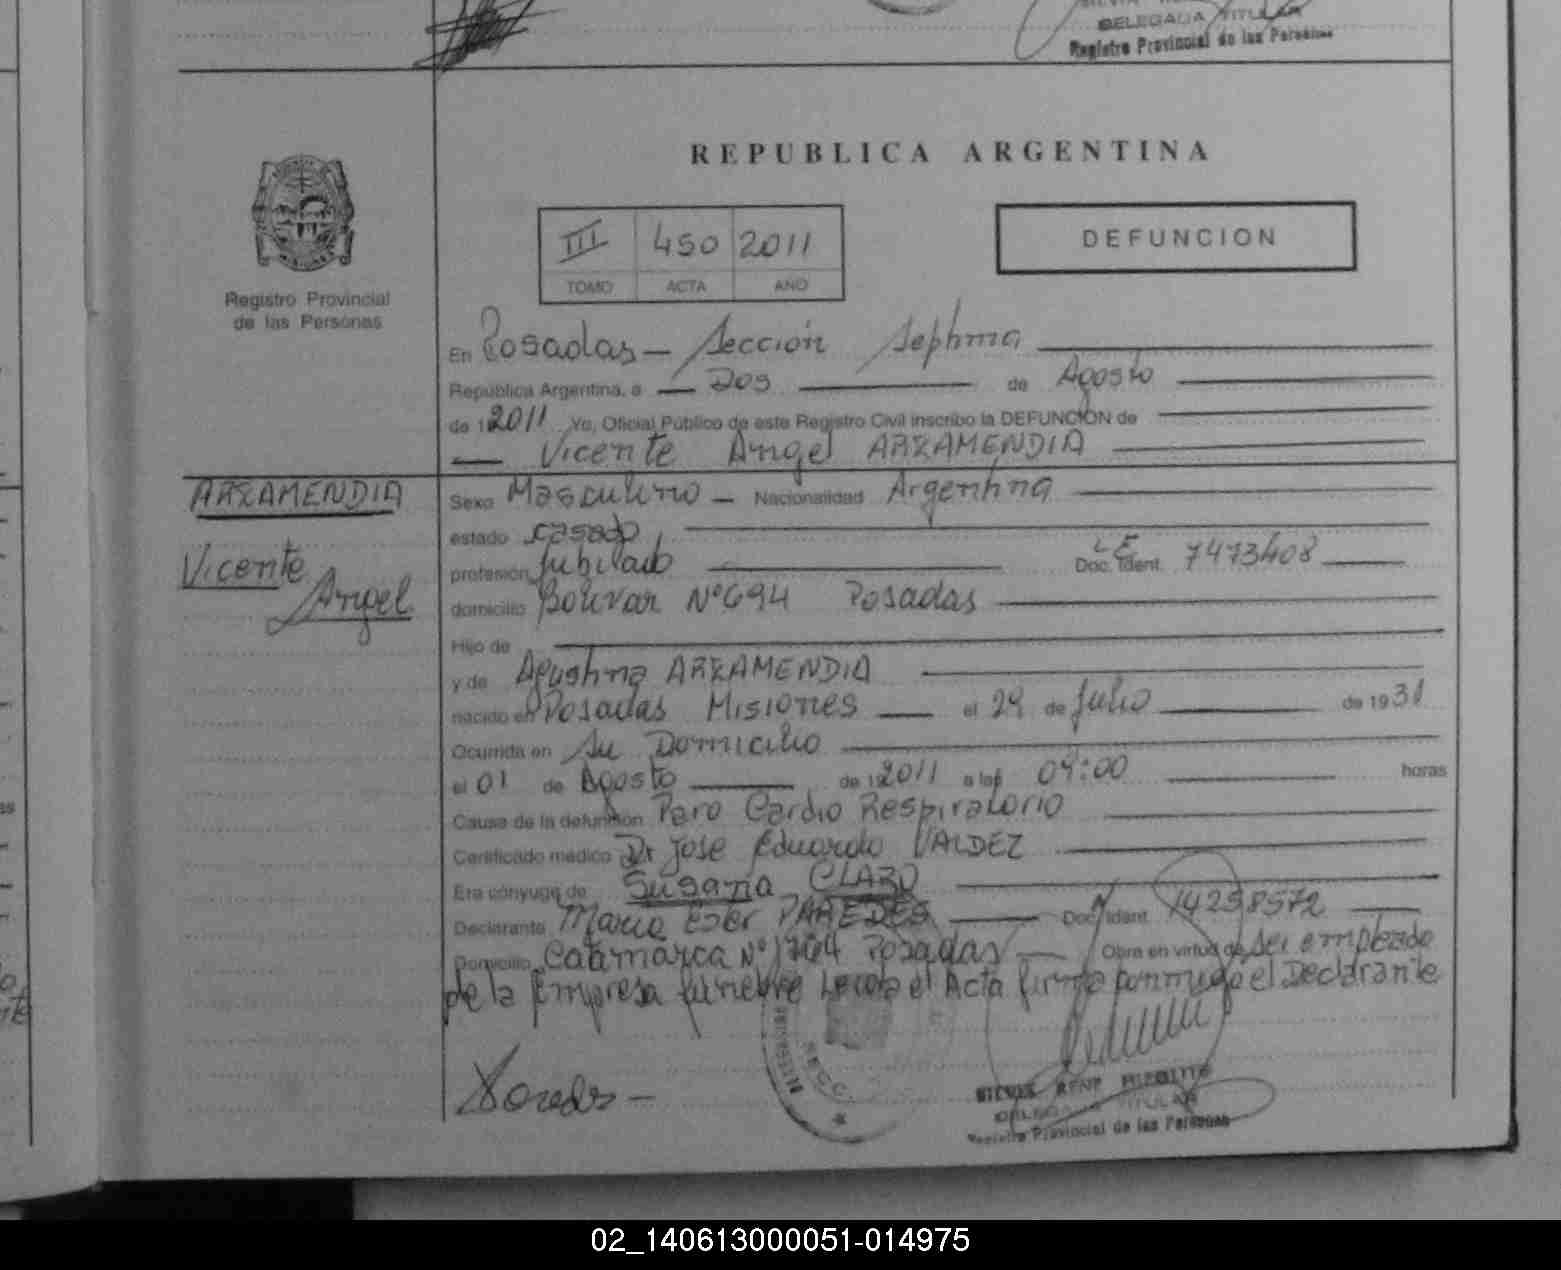 DELEGADA TITULAR
Registro Provincial de las Personas
REPUBLICA ARGENTINA
III 450 2011
TOMO ACTA AÑO
DEFUNCION
Registro Provincial
de las Personas
En Posadas - Sección Septima
República Argentina, a Dos de Agosto
de 1 2011 Yo, Oficial Público de este Registro Civil inscribo la DEFUNCION de
Vicente Angel ARZAMENDIA
ARZAMENDIA
Vicente
Angel
Sexo Masculino - Nacionalidad Argentina
estado casado
profesión Jubilado Doc. Ident. LE 7473408
domicilio Bolivar Nº 694 Posadas
Hijo de
y de Agustina ARZAMENDIA
nacido en Posadas Misiones el 29 de Julio de 1931
Ocurrida en Su Domicilio
el 01 de Agosto de 1 2011 a las 09:00 horas
Causa de la defunción Paro Cardio Respiratorio
Certificado médico Dr Jose Eduardo VALDEZ
Era cónyuge de Susana
Declarante Mario Ester PAREDES Doc. Ident. 14258572
Domicilio Catamarca Nº 1764 Posadas Obra en virtud de ser empleado
de la Empresa funebre Leida el Acta firma conmigo el Declarante
SECC.
DELEGADA TITULAR
Registro Provincial de las Personas
02_140613000051-014975